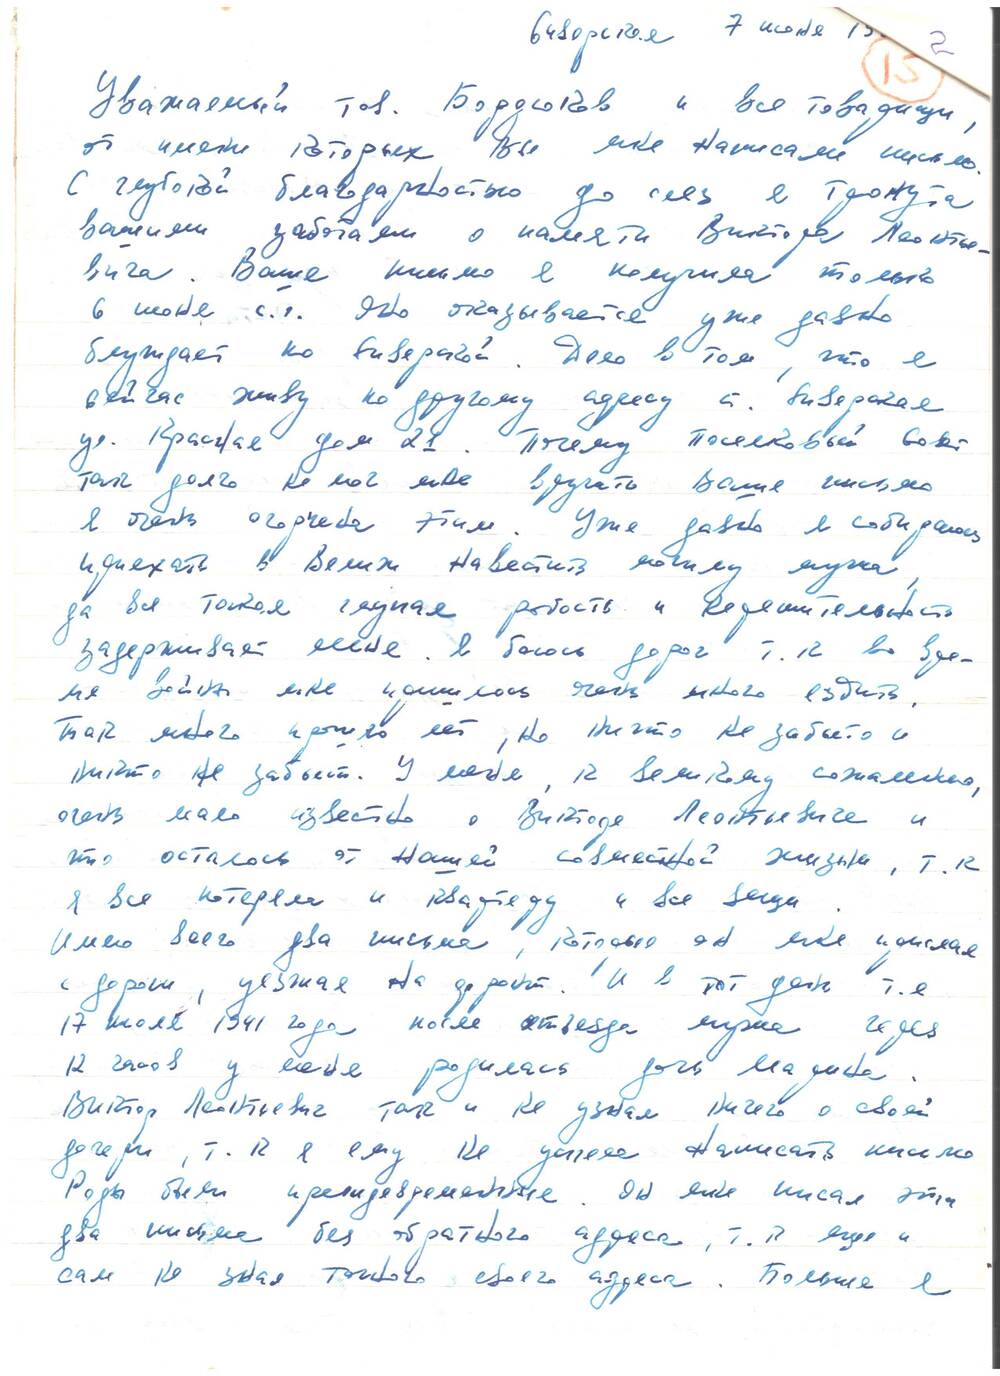 Сиверская 7 июня 19
2
15
Уважаемый тов. Бордюков и все товарищи,
от имени которых Вы мне написали письмо.
С глубокой благодарностью до слез я тронута
вашими заботами о памяти Виктора Леонтье-
вича. Ваше письмо я получила только
в июне с.г. Оно оказывается уже давно
блуждает по Сиверской. Дело в том, что я
сейчас живу по другому адресу ст. Сиверская
ул. Красная дом 21. Почему поселковый совет
так долго не мог мне вручить Ваше письмо
я очень огорчена этим. Уже давно я собираюсь
приехать в Велиж навестить могилу мужа,
да все такая глупая робость и нерешительность
задерживает меня. Я боюсь дорог т.к во вре-
мя войны мне пришлось очень много ездить.
Так много прошло лет, но ничто не забыто и
никто не забыт. У меня, к великому сожалению,
очень мало известно о Викторе Леонтьевиче и
что осталось от нашей совместной жизни, т.к
я все потеряла и квартиру и все вещи.
Имею всего два письма, которые он мне прислал
с дороги, уезжая на фронт. И в тот день т.е
17 июля 1941 года после отъезда мужа через
12 часов у меня родилась дочь Марина.
Виктор Леонтьевич так и не узнал ничего о своей
дочери, т.к я ему не успела написать письмо
Роды были преждевременные. Он мне писал эти
два письма без обратного адреса, т.к еще и
сам не знал точного своего адреса. Больше я